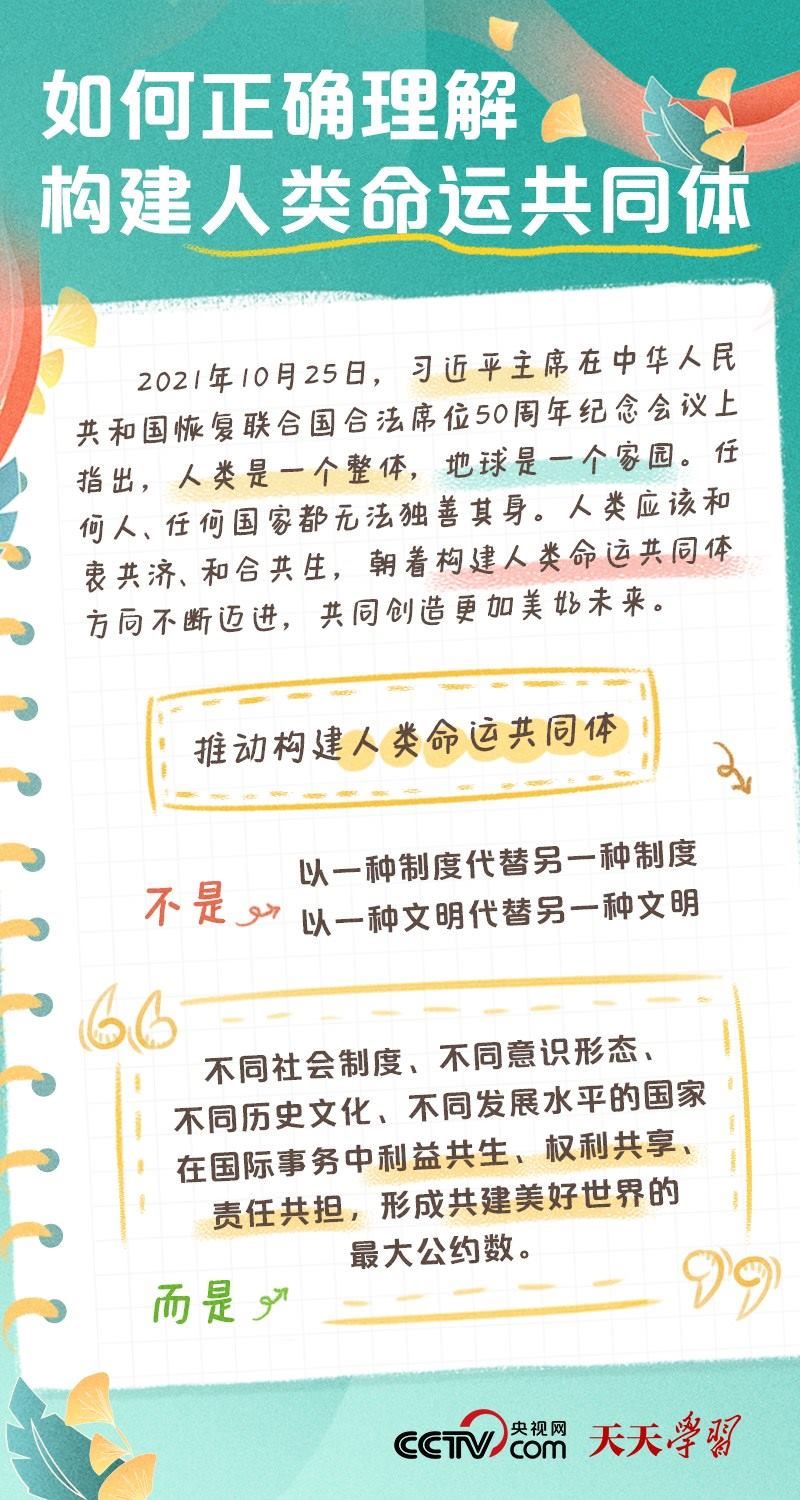 如何正确理解
构建人类命运共同体
2021年10月25日，习近平主席在中华人民
共和国恢复联合国合法席位50周年纪念会议上
指出，人类是一个整体，地球是一个家园。任
何人、任何国家都无法独善其身。人类应该和
衷共济、和合共生，朝着构建人类命运共同体
方向不断迈进，共同创造更加美好未来。
推动构建人类命运共同体
不是
以一种制度代替另一种制度
以一种文明代替另一种文明
“
不同社会制度、不同意识形态、
不同历史文化、不同发展水平的国家
在国际事务中利益共生、权利共享、
责任共担，形成共建美好世界的
最大公约数。
”
而是
CCTV.com 央视网
天天学習